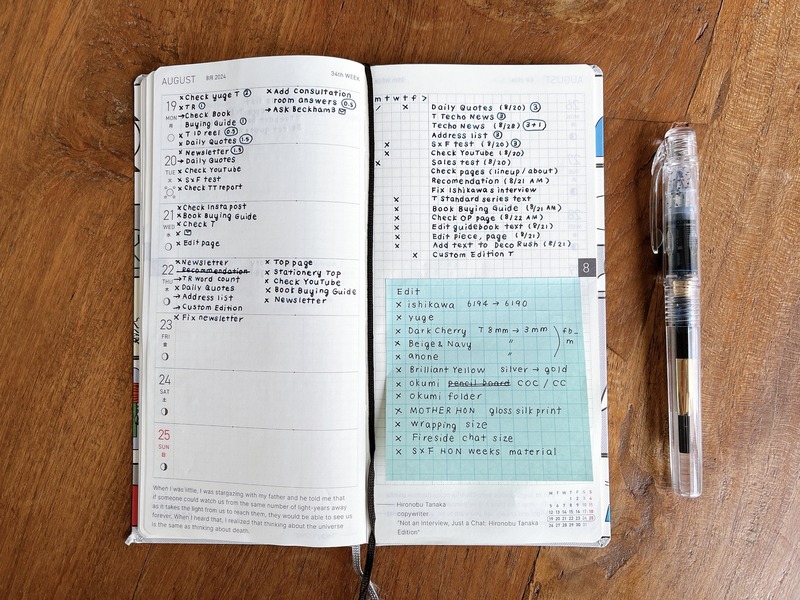 AUGUST 8月 2024 34th WEEK
19 MON 月
× Check yuge T ②
× TR ①
→ Check Book
Buying Guide ①
× T ID reel (0.5)
× Daily Quotes (1.5)
× Newsletter (1.5)
× Add Consultation
room answers (0.5)
→ Ask Beckham3
20 TUE 火
→ Daily Quotes
× Check YouTube
× S×F test
× Check TT report
21 WED 水
× Check Insta post
× Book Buying Guide
× Check T
×
× Edit page
22 THU 木
× Newsletter
Recommendation
→ TR word count
× Daily Quotes
→ Address list
→ Custom Edition
× Top page
× Stationery Top
× Check YouTube
× Book Buying Guide
× Newsletter
23 FRI 金
× Fix newsletter
24 SAT 土
25 SUN 日
When I was little, I was stargazing with my father and he told me that
if someone could watch us from the same number of light-years away
as it takes the light from us to reach them, they would be able to see us
forever. When I heard that, I realized that thinking about the universe
is the same as thinking about death.
m t w t f >
Daily Quotes (8/20) ③
T Techo News ②
Techo News (8/28) (3+1)
Address list ③
S×F test (8/20) ③
Check YouTube (8/20)
Sales test (8/20)
Check pages (lineup/about)
Recomendation (8/21 AM)
Fix Ishikawa's interview
T Standard series text
Book Buying Guide (8/21 AM)
Check OP page (8/22 AM)
Edit guidebook text (8/21)
Edit piece, page (8/21)
Add text to Deco Rush (8/21)
Custom Edition T
8
Edit
× ishikawa 6194 → 6190
× yuge
× Dark Cherry T 8mm → 3mm
× Beige & Navy 〃
× anone 〃
fb_
m
× Brilliant Yellow silver → gold
× okumi pencil board COC / CC
× okumi folder
× MOTHER HON gloss silk print
× wrapping size
× Fireside chat size
× S×F HON weeks material
—— Hironobu Tanaka
copywriter
"Not an Interview, Just a Chat: Hironobu Tanaka
Edition"
M T W T F S S
1 2 3 4
5 6 7 8 9 10 11
12 13 14 15 16 17 18
19 20 21 22 23 24 25
26 27 28 29 30 31